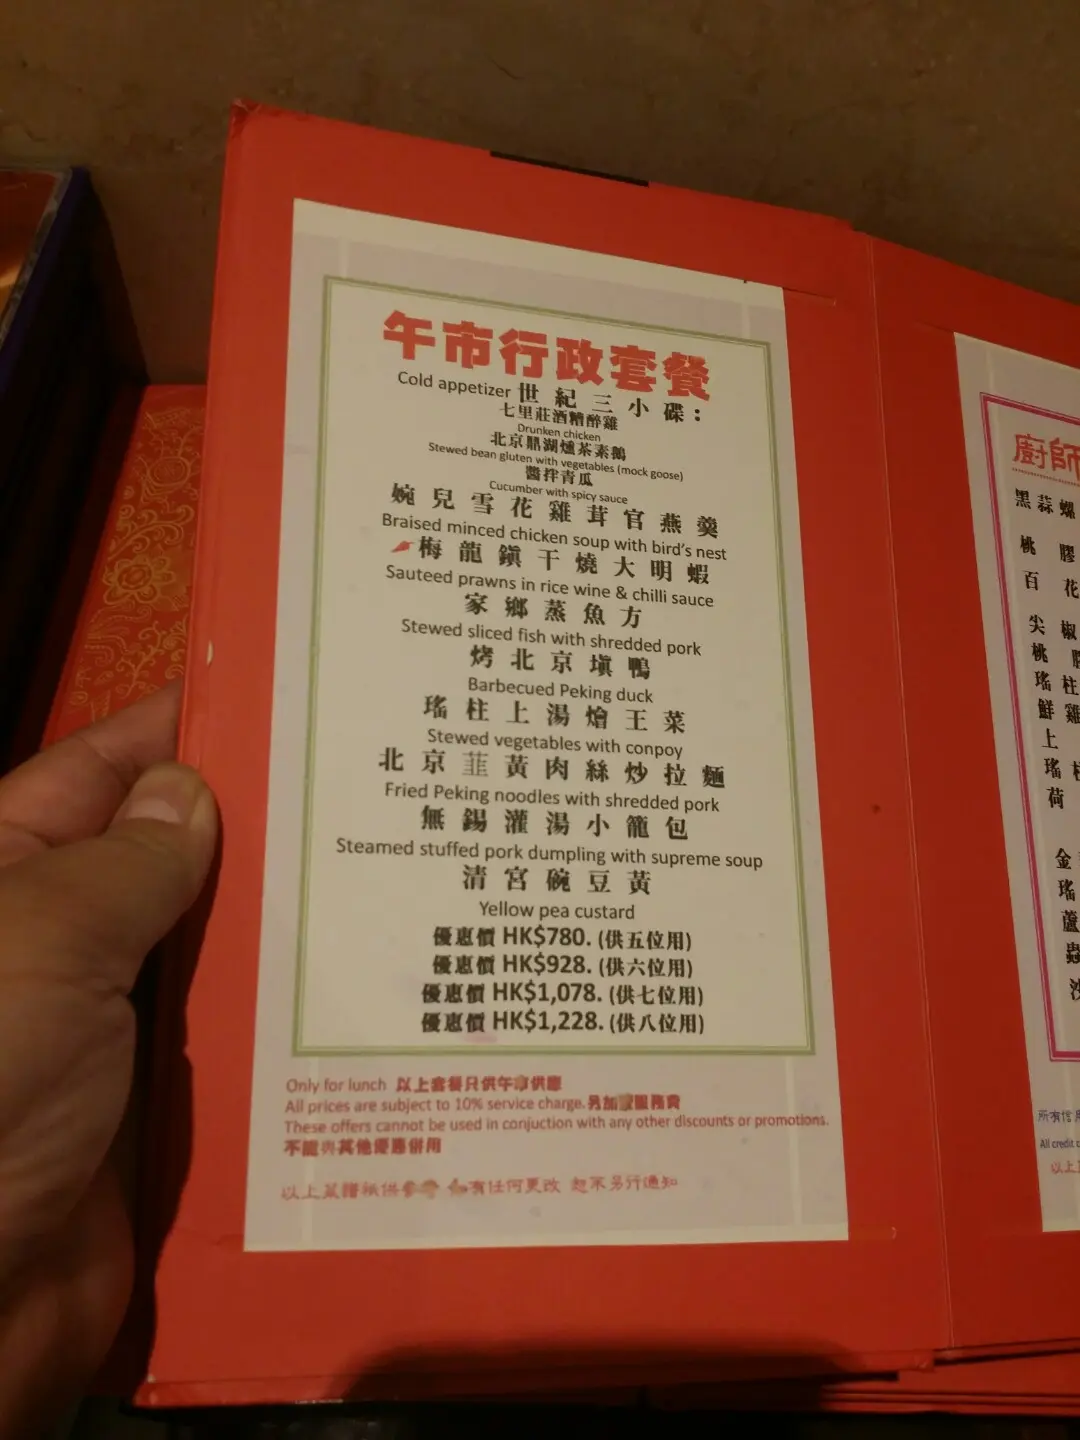 午市行政套餐
Cold appetizer 世紀三小碟：
七里莊酒糟醉雞
Drunken chicken
北京鼎湖燻茶素鵝
Stewed bean gluten with vegetables (mock goose)
醬拌青瓜
Cucumber with spicy sauce
婉兒雪花雞茸官燕羹
Braised minced chicken soup with bird's nest
梅龍鎮干燒大明蝦
Sauteed prawns in rice wine & chilli sauce
家鄉蒸魚方
Stewed sliced fish with shredded pork
烤北京填鴨
Barbecued Peking duck
瑤柱上湯燴王菜
Stewed vegetables with conpoy
北京韮黃肉絲炒拉麵
Fried Peking noodles with shredded pork
無錫灌湯小籠包
Steamed stuffed pork dumpling with supreme soup
清宮碗豆黃
Yellow pea custard
優惠價 HK$780. (供五位用)
優惠價 HK$928. (供六位用)
優惠價 HK$1,078. (供七位用)
優惠價 HK$1,228. (供八位用)
Only for lunch 以上套餐只供午市供應
All prices are subject to 10% service charge. 另加壹服務費
These offers cannot be used in conjuction with any other discounts or promotions.
不能與其他優惠併用
以上菜譜祇供參考 如有任何更改 恕不另行通知
廚師
黑蒜螺
桃膠
百花
尖椒
桃膠
瑤柱
鮮雞
上
瑤柱
荷
金
瑤
蘆
蟲
沙
所有信用
All credit
以上